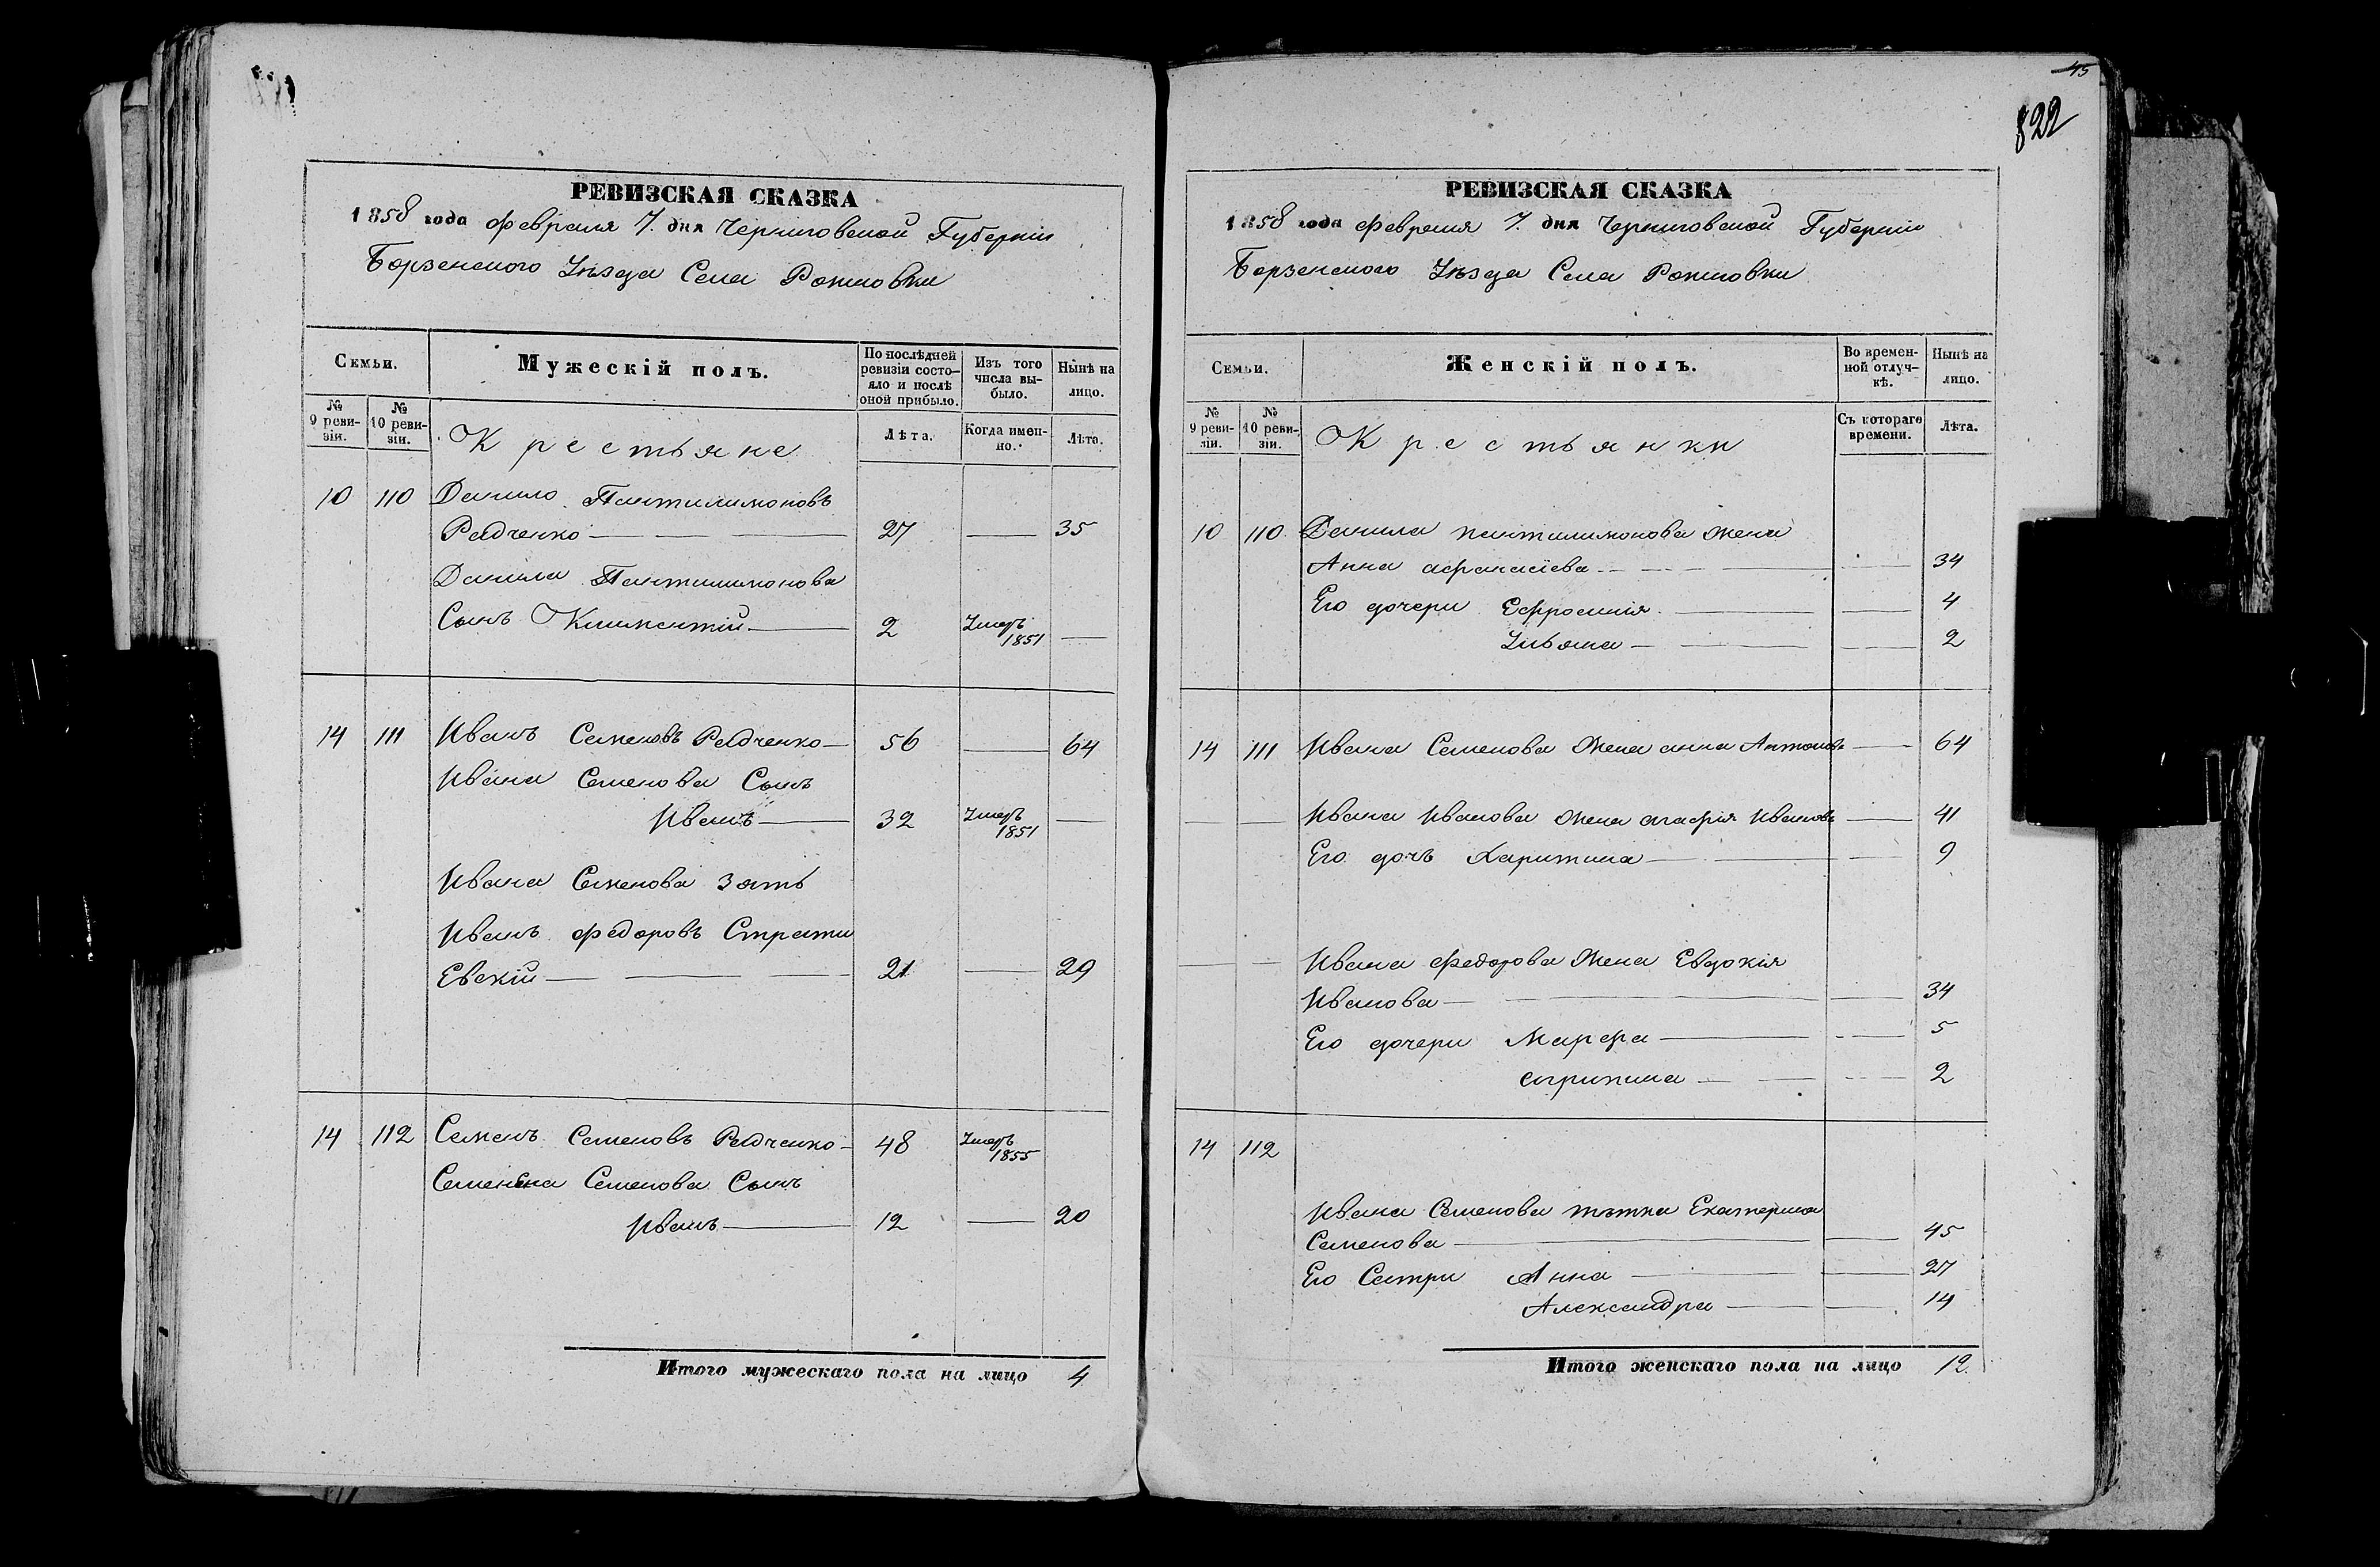 РЕВИЗСКАЯ СКАЗКА
1858 года Февраля 7. дня Черниговской Губерніи
Борзенского Уѣзда Села
Семьи.
Мужескій полъ.
По послѣдней ревизіи состояло и послѣ оной прибыло.
Изъ того числа выбыло.
Нынѣ на лицо.
№ 9 ревизіи.
№ 10 ревизіи.
Крестьяне
Лѣта.
Когда именно.
Лѣта.
10 110 Данило Пантилимоновъ
Редченко 27 — 35
Данила Пантилимонова
Сынъ Климентій 2 Умеръ 1851 —
14 111 Иванъ Семеновъ Редченко 56 — 64
Ивана Семенова Сынъ
Иванъ 32 Умеръ 1851 —
Ивана Семенова Зять
Иванъ Федоровъ Страти
Евскій 21 — 29
14 112 Семенъ Семеновъ Редченко 48 Умеръ 1855
Семена Семенова Сынъ
Иванъ 12 — 20
Итого мужескаго пола на лицо 4
45
822
РЕВИЗСКАЯ СКАЗКА
1858 года Февраля 7. дня Черниговской Губерніи
Борзенского Уѣзда Села
Семьи.
Женскій полъ.
Во временной отлучкѣ.
Нынѣ на лицо.
№ 9 ревизіи.
№ 10 ревизіи.
Крестьянки
Съ котораго времени.
Лѣта.
10 110 Данила Пантилимонова Жена
Анна Афанасіева — 34
Его дочери Ефросинія — 4
Ульяна — 2
14 111 Ивана Семенова Жена Анна Антонова — 64
— — Ивана Иванова Жена Агафія Иванова — 41
Его дочь Харитина — 9
— — Ивана Федорова Жена Евдокія
Иванова — 34
Его дочери Марфа — 5
Агрипина — 2
14 112
Ивана Семенова тѣтка Екатерина
Семенова — 45
Его Сестри Анна — 27
Александра — 14
Итого женскаго пола на лицо 12.